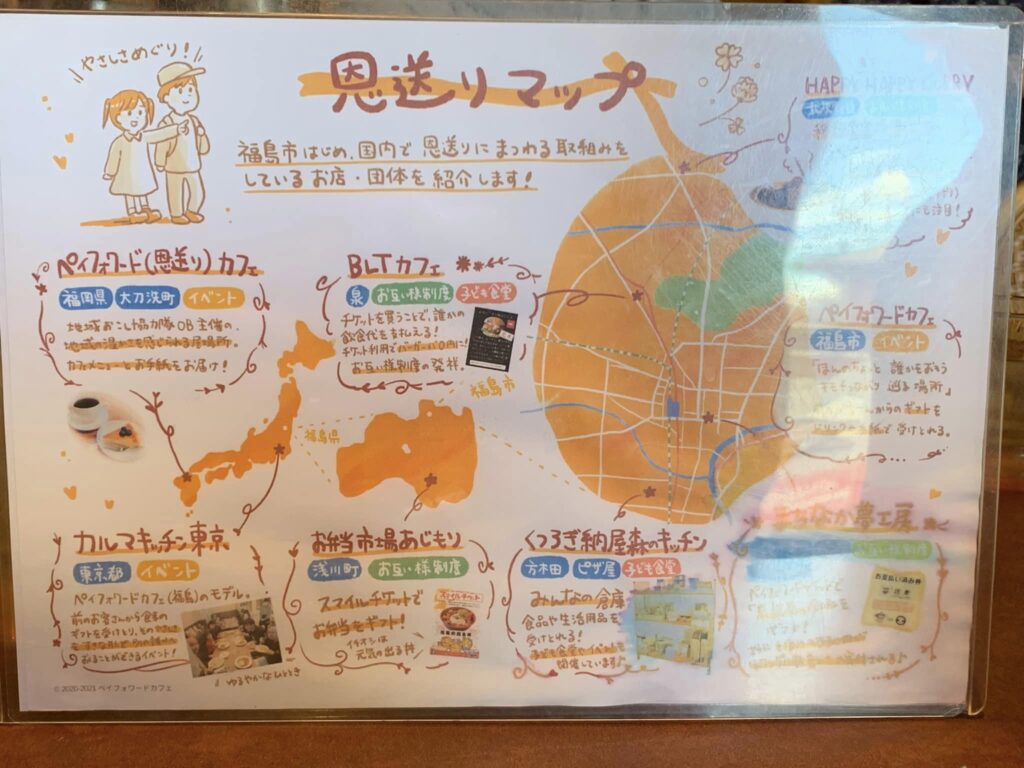 やさしさめぐり!
恩送りマップ
福島市はじめ、国内で恩送りにまつわる取組みを
しているお店・団体を紹介します!
HAPPY HAPPY CURRY
も注目!
ペイフォワード(恩送り)カフェ
福岡県 大刀洗町 イベント
地域おこし協力隊OB主催の、
地域の温かさを感じられる居場所。
カフェメニューとお手紙をお届け!
BLTカフェ
泉 お互い様制度 子ども食堂
チケットを買うことで、誰かの
飲食代を支払える!
チケット利用でバーガーが0円に!
お互い様制度の発祥。
福島市
福島県
ペイフォワードカフェ
福島市 イベント
「ほんのちょっと 誰かをおもう
キモチつながり 巡る場所」
からのギフトを
ドリンクと手紙で受けとれる。
カルマキッチン東京
東京都 イベント
ペイフォワードカフェ(福島)のモデル。
前のお客さんから食事の
ギフトを受けとり、その
おくることができるイベント!
ゆるやかなひととき
お弁当市場あじもり
浅川町 お互い様制度
スマイルチケットで
お弁当をギフト!
イチオシは
元気の出る丼
スマイルチケット
くつろぎ納屋森のキッチン
方木田 ピザ屋 子ども食堂
みんなの倉庫
食品や生活用品を
受けとれる!
子ども食堂やイベントも
開催しています♪
まちなか夢工房
お互い様制度
お支払い済み券
© 2020-2021 ペイフォワードカフェ